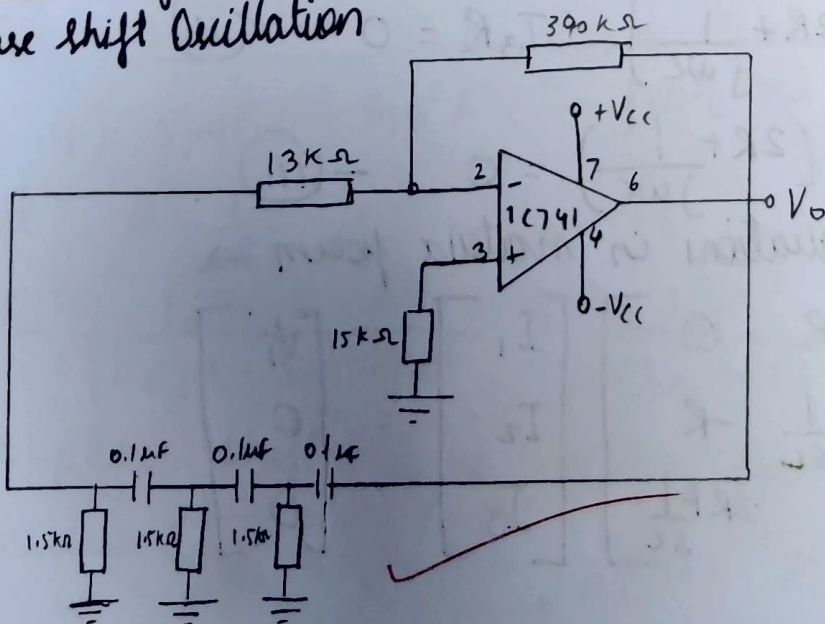 se shift Oscillation
390kΩ
+Vcc
13KΩ
2
-
7
6
Vo
1C741
3
+
4
-Vcc
15kΩ
0.1μF 0.1μF 0.1μF
1.5kΩ 1.5kΩ 1.5kΩ